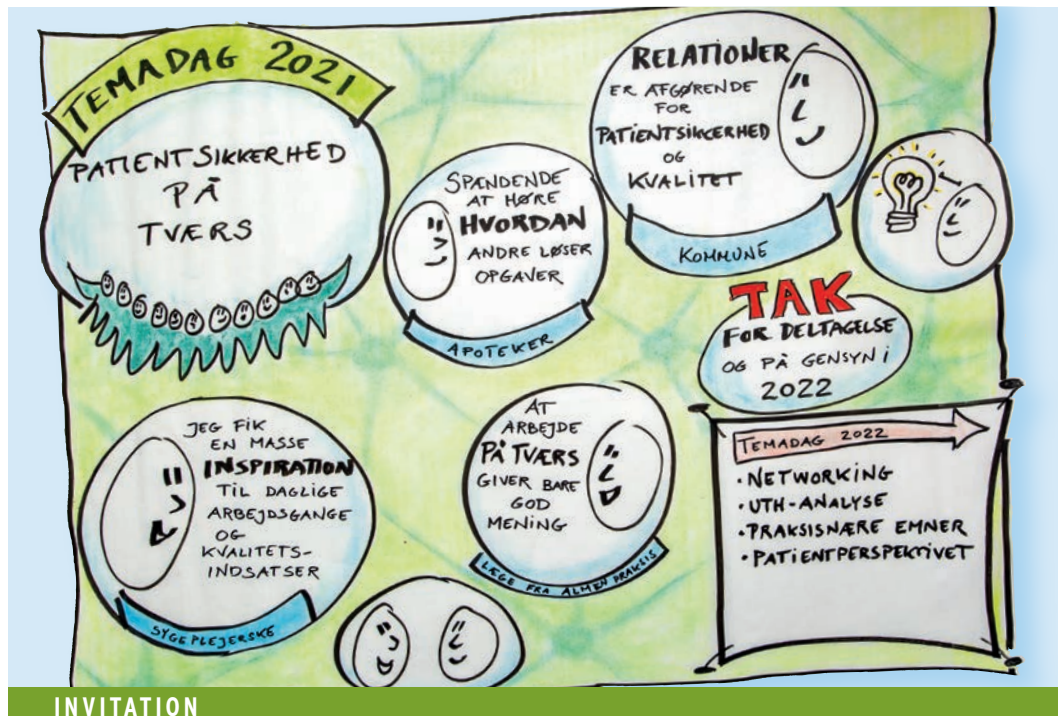 TEMADAG 2021
PATIENTSIKKERHED
PÅ
TVÆRS
SPÆNDENDE
AT HØRE
HVORDAN
ANDRE LØSER
OPGAVER
APOTEKER
RELATIONER
ER AFGØRENDE
FOR
PATIENTSIKKERHED
OG
KVALITET
KOMMUNE
TAK
FOR DELTAGELSE
OG PÅ GENSYN i
2022
JEG FIK
EN MASSE
INSPIRATION
TIL DAGLIGE
ARBEJDSGANGE
OG
KVALITETS-
INDSATSER
SYGEPLEJERSKE
AT
ARBEJDE
PÅ TVÆRS
GIVER BARE
GOD
MENING
LÆGE FRA ALMEN PRAKSIS
TEMADAG 2022
• NETWORKING
• UTH-ANALYSE
• PRAKSISNÆRE EMNER
• PATIENTPERSPEKTIVET
INVITATION